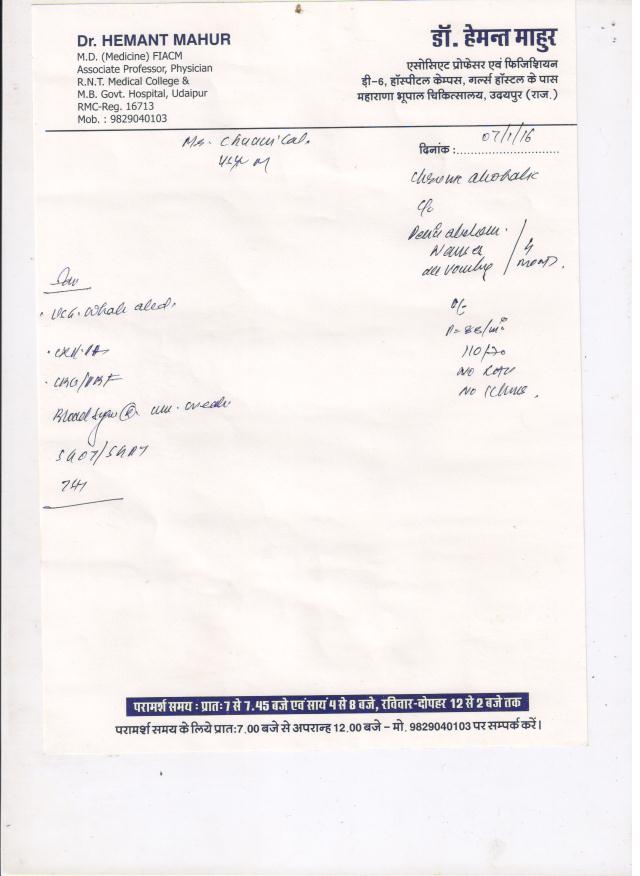 Dr. HEMANT MAHUR
M.D. (Medicine) FIACM
Associate Professor, Physician
R.N.T. Medical College &
M.B. Govt. Hospital, Udaipur
RMC-Reg. 16713
Mob. : 9829040103
डॉ. हेमन्त माहुर
एसोसिएट प्रोफेसर एवं फिजिशियन
डी-6, हॉस्पीटल केम्पस, गर्ल्स हॉस्टल के पास
महाराणा भूपाल चिकित्सालय, उदयपुर (राज.)
दिनांक :
07/1/16
Chronic alcoholic
c/o
Nausea
vomiting
4
month.
O/E
P= 88/m
110/70
No
No Icterus.
USG. Whole abd.
CXR. PA
Blood Sugar (R)
SGOT/SGPT
परामर्श समय : प्रातः 7 से 7.45 बजे एवं सायं 4 से 8 बजे, रविवार-दोपहर 12 से 2 बजे तक
परामर्श समय के लिये प्रातः7.00 बजे से अपरान्ह 12.00 बजे – मो. 9829040103 पर सम्पर्क करें।